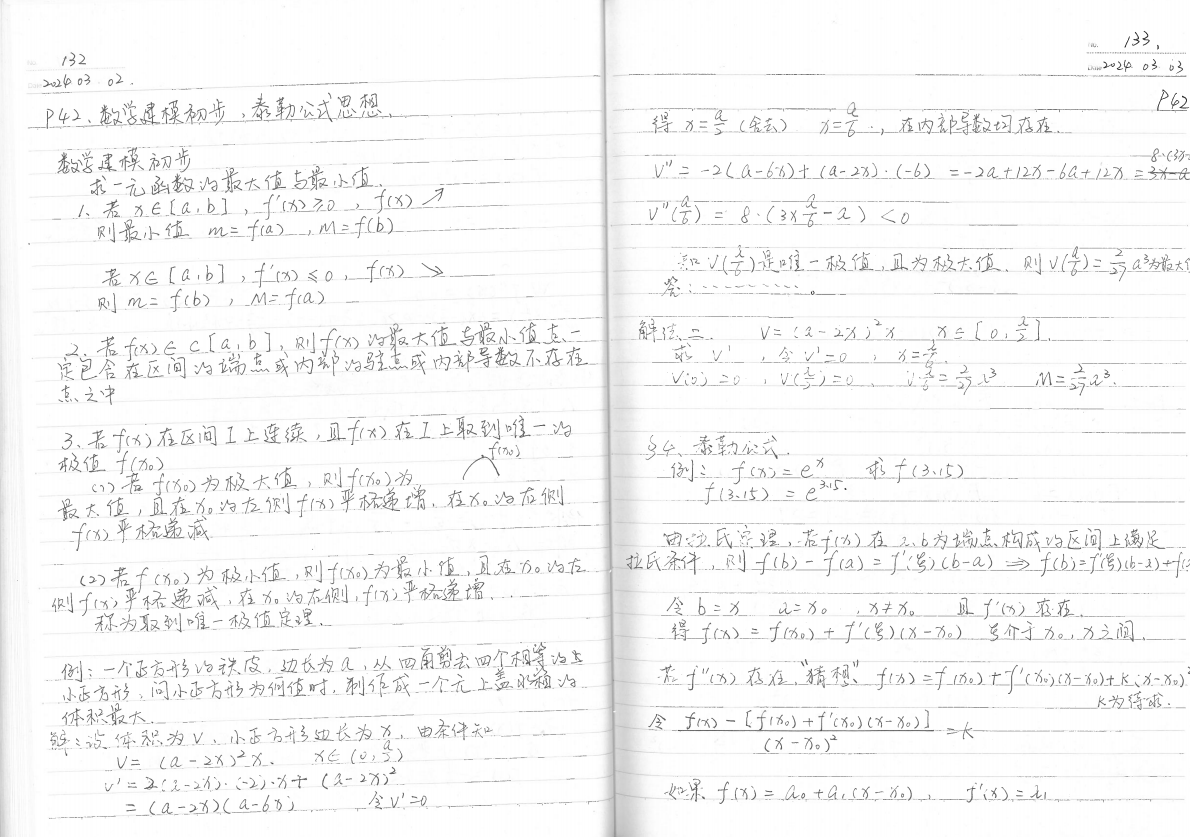 132
Date 2024.03.02.
P42、数学建模初步,泰勒公式思想、
数学建模初步
求一元函数的最大值与最小值.
1、若 x∈[a,b], f'(x)≥0, f(x)↗
则最小值 m=f(a), M=f(b)
若 x∈[a,b], f'(x)≤0, f(x)↘
则 m=f(b), M=f(a)
2、若 f(x)∈C[a,b],则f(x)的最大值与最小值点一
定包含在区间的端点或内部的驻点或内部导数不存在
点之中
3、若f(x)在区间I上连续,且f(x)在I上取到唯一的
极值 f(x₀)
f(x₀)
(1)若 f(x₀)为极大值,则f(x₀)为
最大值,且在x₀的左侧f(x)严格递增,在x₀的右侧
f(x)严格递减
(2)若f(x₀)为极小值,则f(x₀)为最小值,且在x₀的左
侧f(x)严格递减,在x₀的右侧,f(x)严格递增.
称为取到唯一极值定理.
例:一个正方形的铁皮,边长为a,从四角剪去四个相等的
小正方形,问小正方形为何值时,制作成一个无上盖水箱的
体积最大.
解:设体积为V、小正方形边长为x,由条件知
V=(a-2x)²x. x∈(0,a/2)
V'=2(a-2x)·(-2)·x+(a-2x)²
=(a-2x)(a-6x) 令V'=0
No. 133.
Date 2024.03.03
P42
得 x=a/2(舍去) x=a/6.,在内部导数均存在.
V''=-2(a-6x)+(a-2x)·(-6)=-2a+12x-6a+12x=8·(3x-
V''(a/6)=8·(3×a/6-a)<0
知V(a/6)是唯一极值,且为极大值.则V(a/6)=2/27 a³为最大
答:………。
解法二 V=(a-2x)²x x∈[0,a/2].
求 V',令V'=0, x=a/6.
V(0)=0, V(a/2)=0、 V(a/6)=2/27 a³ M=2/27 a³.
§4、泰勒公式.
例: f(x)=eˣ 求f(3.15)
f(3.15)=e^3.15.
由拉氏定理,若f(x)在a,b为端点构成的区间上满足
拉氏条件,则 f(b)-f(a)=f'(ξ)(b-a) ⇒ f(b)=f'(ξ)(b-a)+f(
令b=x a=x₀, x≠x₀ 且f'(x)存在.
得 f(x)=f(x₀)+f'(ξ)(x-x₀) ξ介于x₀,x之间.
若f''(x)存在,"猜想" f(x)=f(x₀)+f'(x₀)(x-x₀)+k·(x-x₀)²
k为待求.
令 f(x)-[f(x₀)+f'(x₀)(x-x₀)] / (x-x₀)² =k
如果 f(x)=a₀+a₁(x-x₀), f'(x)=a₁